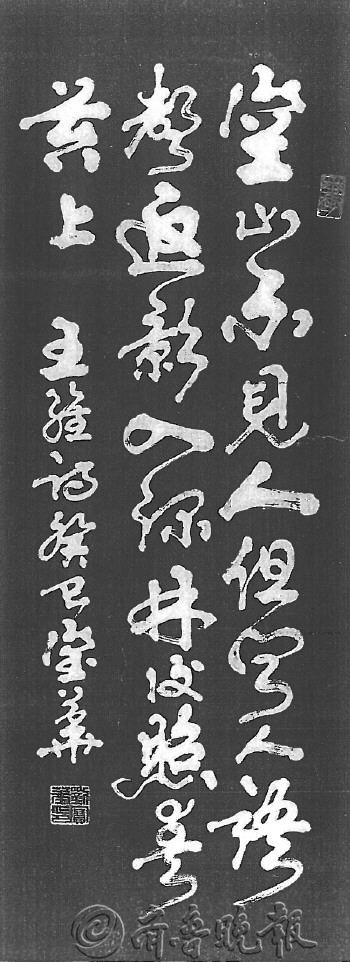 空山不見人但聞人語
響返影入深林復照青
苔上
王維詩癸巳華
齊魯晚報